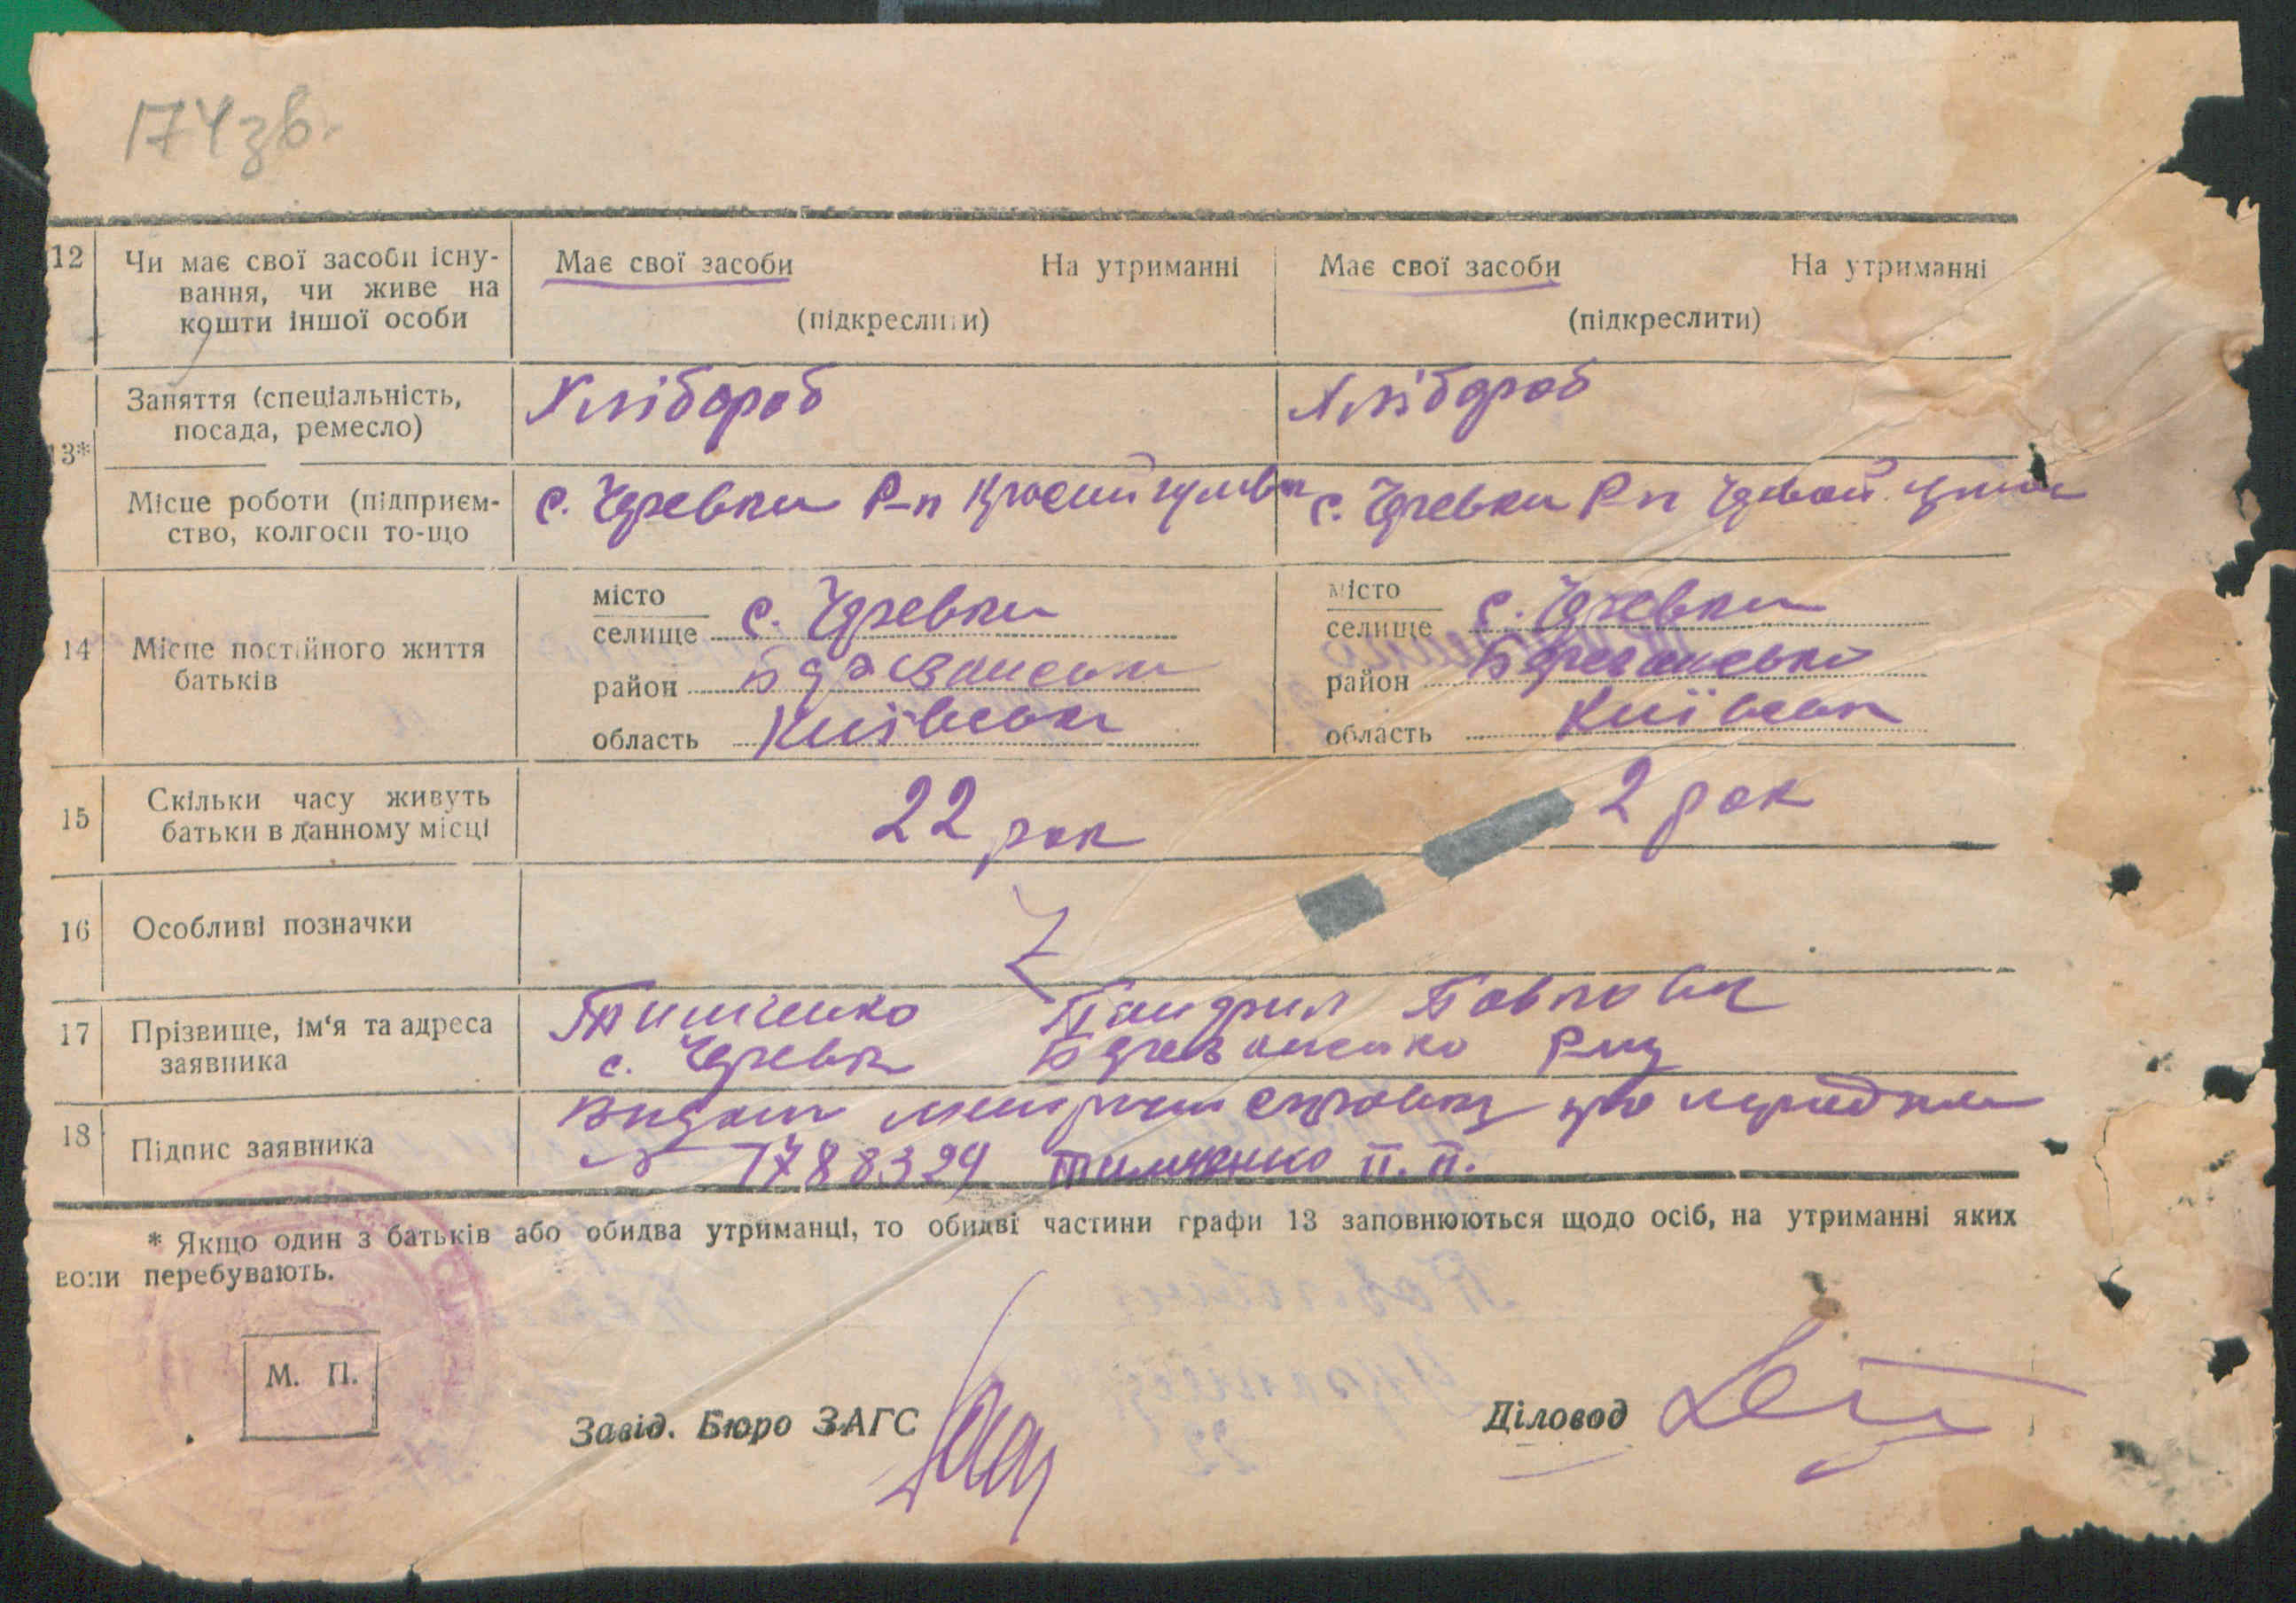 174зв.
12 Чи має свої засоби існу-
вання, чи живе на
кошти іншої особи
Має свої засоби На утриманні
(підкреслити)
Має свої засоби На утриманні
(підкреслити)
13*
Заняття (спеціальність,
посада, ремесло)
Хлібороб
Хлібороб
Місце роботи (підприєм-
ство, колгосп то-що
с. Черевки Р-н
с. Черевки Р н
14 Місце постійного життя
батьків
місто
селище с. Черевки
район Березанськи
область Київськи
місто
селище с. Черевки
район Березансько
область Київськи
15 Скільки часу живуть
батьки в данному місці
22 рок
2 рок
16 Особливі позначки
17 Прізвище, ім'я та адреса
заявника
Тимченко Павлови
с. Черевк Березансько
18 Підпис заявника
1788329 Тимченко П. П.
* Якщо один з батьків або обидва утриманці, то обидві частини графи 13 заповнюються щодо осіб, на утриманні яких
вони перебувають.
М. П.
Завід. Бюро ЗАГС
Діловод